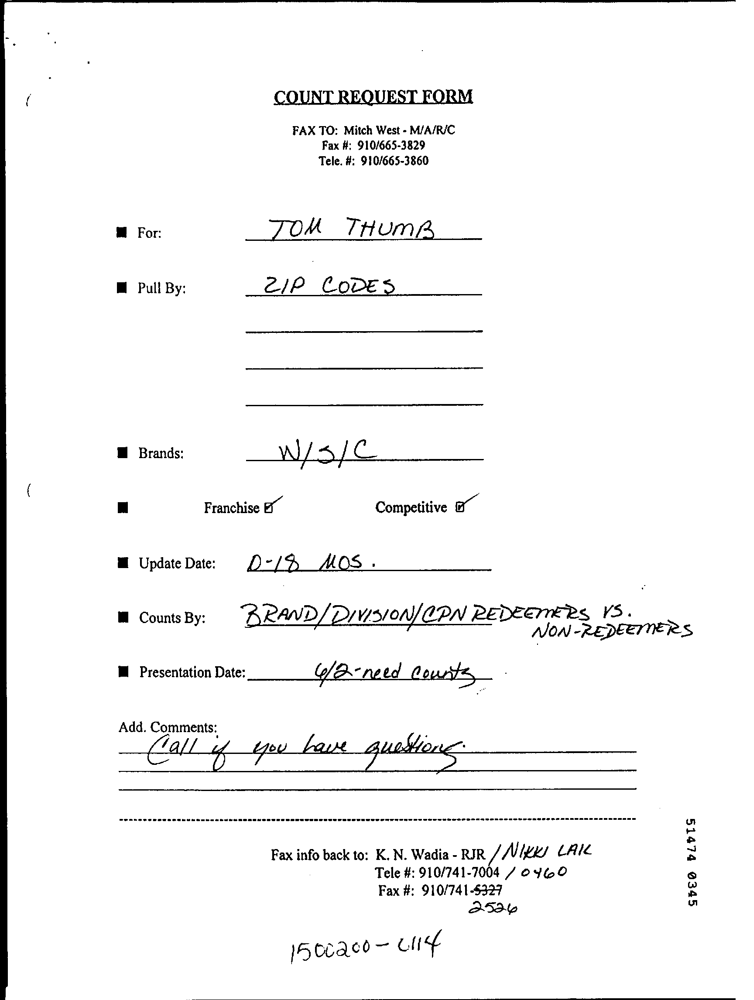 COUNT REQUEST FORM
FAX TO: Mitch West - M/A/R/C
Fax #: 910/665-3829
Tele. #: 910/665-3860
For: TOM THUMB
Pull By: ZIP CODES
Brands: W/S/C
Franchise Competitive
Update Date: 0-18 MOS.
Counts By: BRAND/DIVISION/CPN REDEEMERS VS.
NON-REDEEMERS
Presentation Date: 6/2-need counts
Add. Comments:
Call if you have questions.
Fax info back to: K. N. Wadia - RJR / NIKKI LAIL
Tele #: 910/741-7004 / 0460
Fax #: 910/741-5327
2526
1500200-
51474 0345